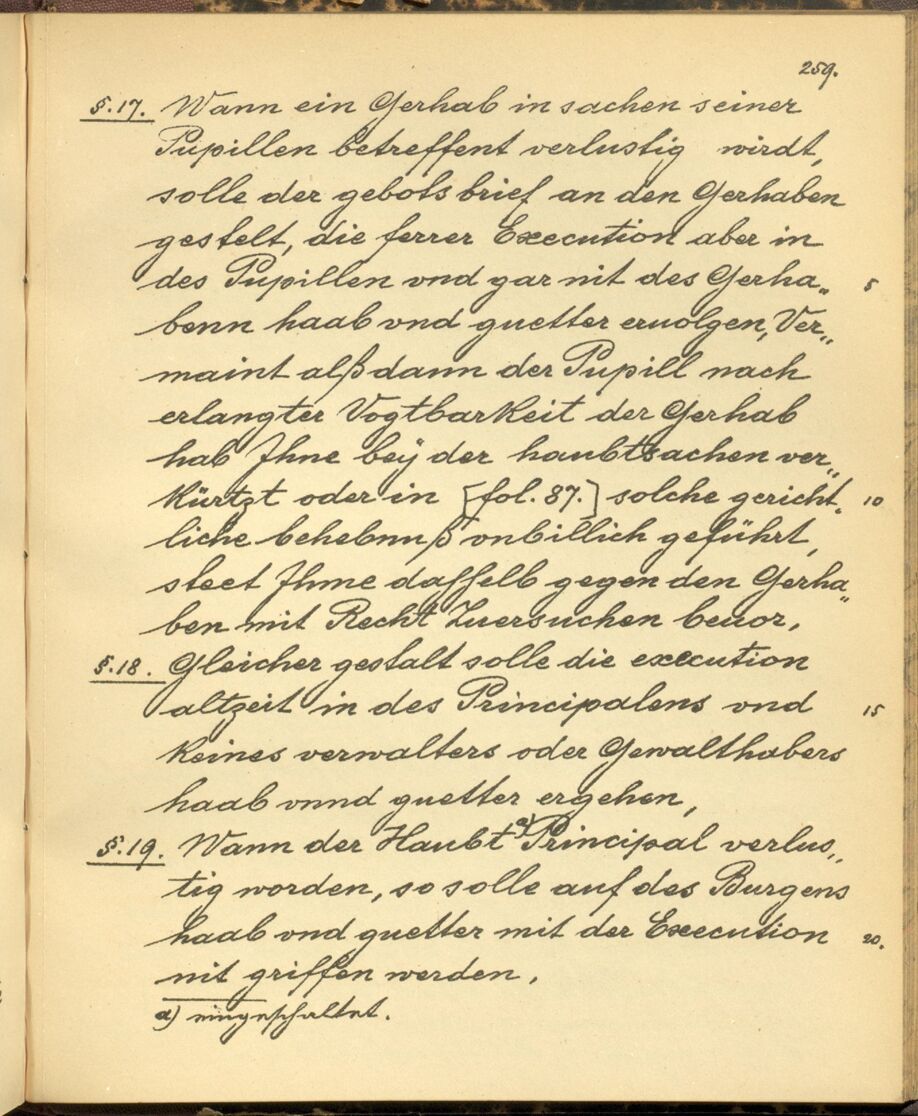 259.
§.17. Wann ein Gerhab in sachen seiner
Pupillen betreffent verlustig wirdt,
solle der gebots brief an den Gerhaben
gestelt, die ferrer Execution aber in
des Pupillen vnd gar nit des Gerha„ 5
benn haab vnd guetter eruolgen, Ver„
maint alßdann der Pupill nach
erlangter Vogtbarkeit der Gerhab
hab Ihne beÿ der haubtsachen ver„
kürtzt oder in [fol. 87.] solche gericht„ 10
liche behebnuß vnbillich geführt,
steet Ihme dasselb gegen den Gerha„
ben mit Recht Zuersuchen beuor,
§.18. Gleicher gestalt solle die execution
altzeit in des Principalens vnd 15
keines verwalters oder Gewalthabers
haab vnnd guetter ergehen,
§.19. Wann der Haubt a) Principal verlus„
tig worden, so solle auf des Burgens
haab vnd guetter mit der Execution 20.
nit griffen werden.
a) eingeschaltet.